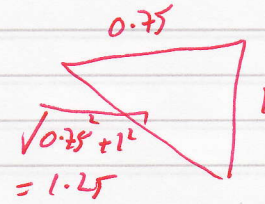 0.75
√0.75² + 1²
= 1.25